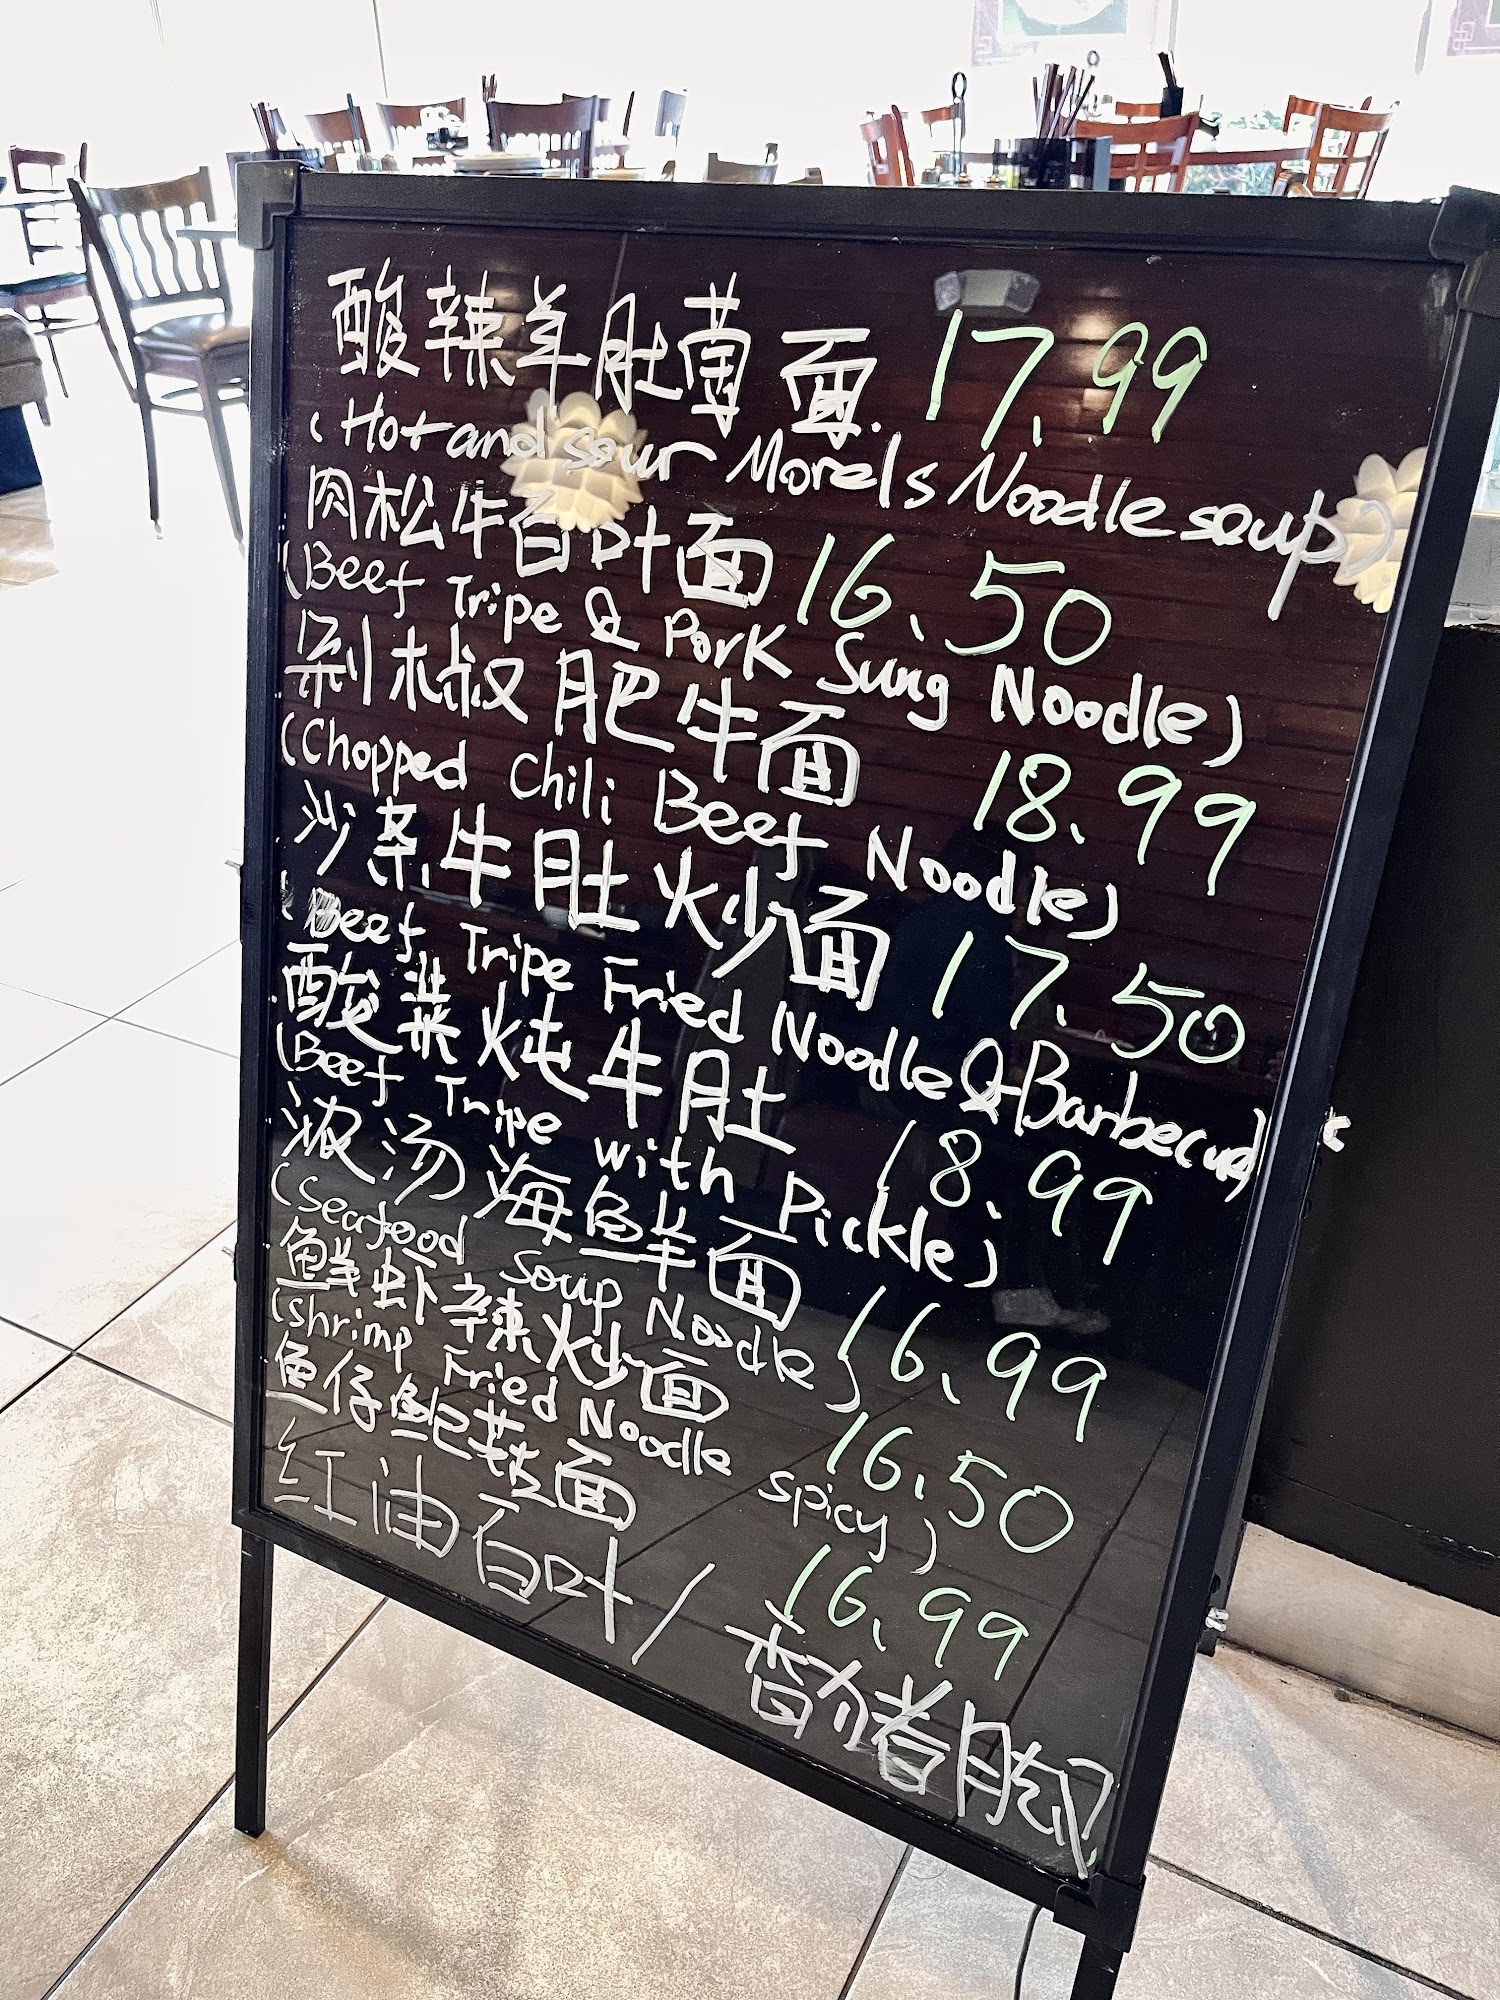 酸辣羊肚菌面. 17.99
(Hot and sour Morels Noodle soup)
肉松牛百叶面 16.50
(Beef Tripe & Pork Sung Noodle)
剁椒肥牛面 18.99
(Chopped Chili Beef Noodle)
沙茶牛肚炒面 17.50
(Beef Tripe Fried Noodle & Barbecue)
酸菜炖牛肚 18.99
(Beef Tripe with Pickle)
浓汤海鲜面 16.99
(Seafood Soup Noodle)
鲜虾辣炒面 16.50
(Shrimp Fried Noodle spicy)
鱼仔鲍菇面 16.99
红油百叶 / 香芋猪脚